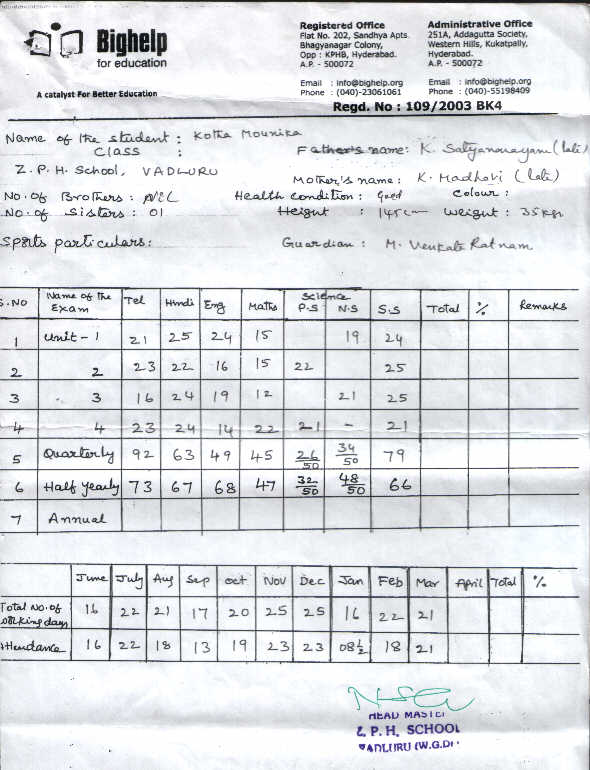 Bighelp
for education
A catalyst For Better Education
Registered Office
Flat No. 202, Sandhya Apts.
Bhagyanagar Colony,
Opp : KPHB, Hyderabad.
A.P. - 500072
Email : info@bighelp.org
Phone : (040)-23061061
Administrative Office
251A, Addagutta Society,
Western Hills, Kukatpally,
Hyderabad.
A.P. - 500072
Email : info@bighelp.org
Phone : (040)-55198409
Regd. No : 109/2003 BK4
Name of the student : Kotha Mounika
Class : Father's name: K. Satyanarayana (late)
Z. P. H. School, VADLURU
Mother's name : K. Madhavi (late)
No. of Brothers : NIL Health condition : Good Colour :
No. of Sisters : 01 Height : 145cm Weight : 35kgs
Sports particulars: Guardian : M. Venkata Ratnam
S.NO Name of the Exam Tel Hindi Eng Maths Science P.S N.S S.S Total % Remarks
1 Unit - 1 21 25 24 15 19 24
2 2 23 22 16 15 22 25
3 3 16 24 19 12 21 25
4 4 23 24 14 22 21 - 21
5 Quarterly 92 63 49 45 26/50 34/50 79
6 Half Yearly 73 67 68 47 32/50 48/50 66
7 Annual
June July Aug Sep Oct Nov Dec Jan Feb Mar April Total %
Total No. of working days 16 22 21 17 20 25 25 16 22 21
Attendance 16 22 18 13 19 23 23 08½ 18 21
HEAD MASTER
Z. P. H. SCHOOL
VADLURU (W.G.Dt